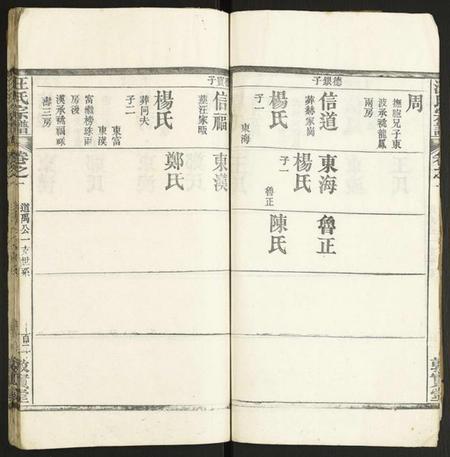 周
撫胞兄子東
波承祧龍鳳
兩房
德銀子
信道
葬蔡家崗
楊氏
子一
東海
東海
楊氏
子一
魯正
魯正
陳氏
敦實堂
寶子
信福
葬汪家畈
楊氏
葬同夫
子二
東富
東漢
東漢
鄭氏
富繼榜珠兩
房後
漢承祧福祿
壽三房
汪氏宗譜
卷之一
道禹公一支世系
百二
敦實堂